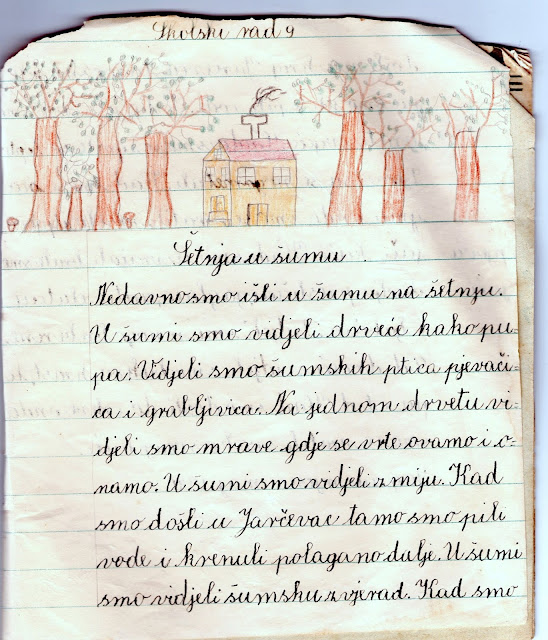 Školski rad 9
Šetnja u šumu.
Nedavno smo išli u šumu na šetnju.
U šumi smo vidjeli drveće kako pu-
pa. Vidjeli smo šumskih ptica pjevači-
ca i grabljivica. Na jednom drvetu vi-
djeli smo mrave gdje se vrte ovamo i o-
namo. U šumi smo vidjeli zmiju. Kad
smo došli u Jarčevac tamo smo pili
vode i krenuli polagano dalje. U šumi
smo vidjeli šumsku zvjerad. Kad smo